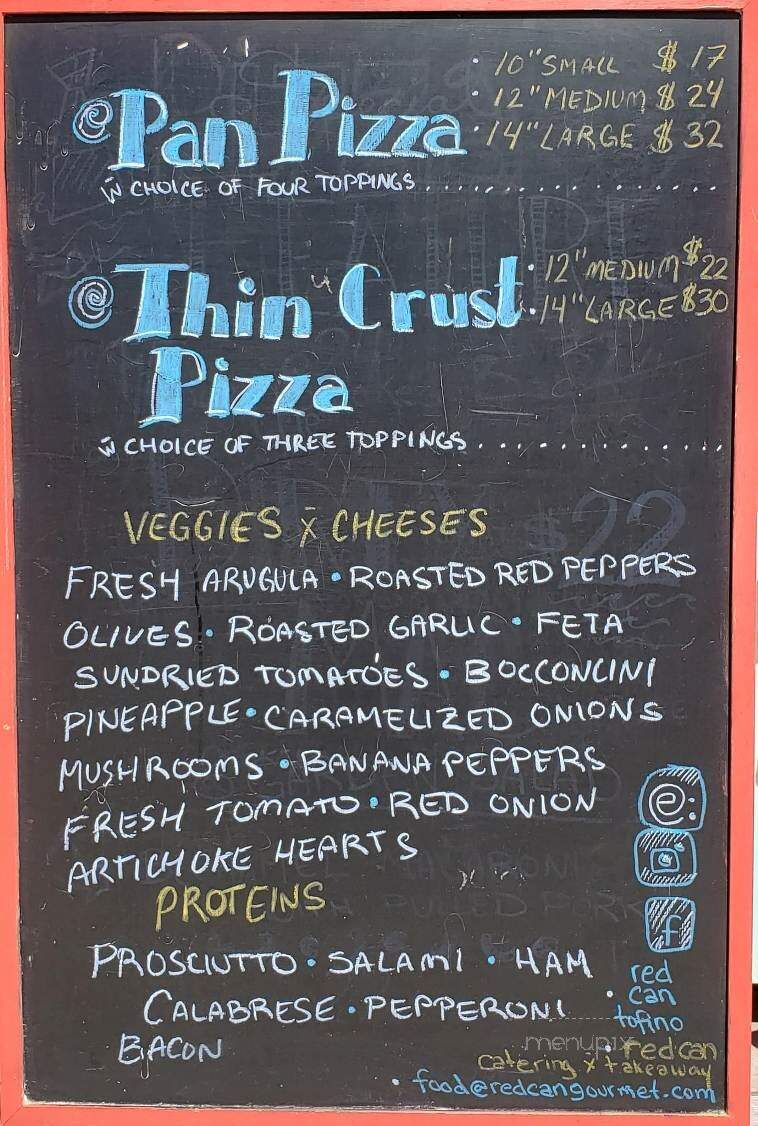 Pan Pizza
• 10" SMALL $17
• 12" MEDIUM $24
• 14" LARGE $32
W̄ CHOICE OF FOUR TOPPINGS . . . . . . . . . . . . . . . .
Thin Crust
Pizza
• 12" MEDIUM $22
• 14" LARGE $30
W̄ CHOICE OF THREE TOPPINGS . . . . . . . . . . . . .
VEGGIES x̄ CHEESES
FRESH ARUGULA • ROASTED RED PEPPERS
OLIVES • ROASTED GARLIC • FETA
SUNDRIED TOMATOES • BOCCONCINI
PINEAPPLE • CARAMELIZED ONIONS
MUSHROOMS • BANANA PEPPERS
FRESH TOMATO • RED ONION
ARTICHOKE HEARTS
PROTEINS
PROSCIUTTO • SALAMI • HAM
CALABRESE • PEPPERONI
BACON
e:
f
red
• can
tofino
menupix
• red can
catering x̄ takeaway
• food@redcangourmet.com